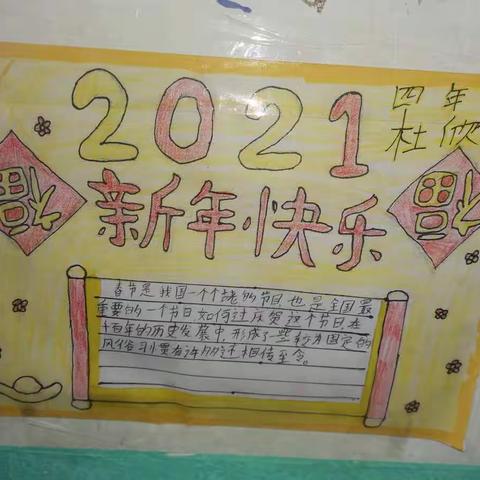 2021
四年
杜欣
新年快乐
福
福
春节是我国一个个传统的节日也是全国最
重要的一个节日如何过庆贺这个节日在
千百年的历史发展中,形成了一些较为固定的
风俗习惯有许多还相传至今。